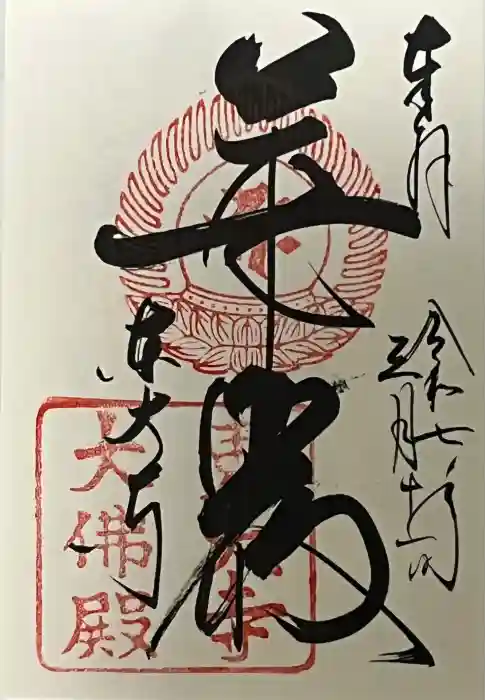 奉拝
令和七年
三月
華嚴
東大寺
東大寺
大佛殿